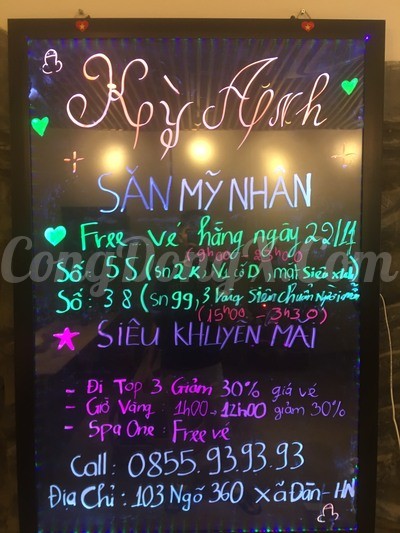 Kỳ Anh
SĂN MỸ NHÂN
Free vé hằng ngày 22/11
Số: 55 (sn 2K, V1 cỡ D, mặt siêu
Số: 38 (sn 99, 3 vòng Siêu chuẩn
(15h00 - 3h30)
SIÊU KHUYẾN MÃI
- Đi Top 3 Giảm 30% giá vé
- Giờ Vàng: 1h00 → 12h00 giảm 30%
- Spa One: Free vé
Call: 0855.93.93.93
Địa Chỉ: 103 Ngõ 360 Xã Đàn - HN